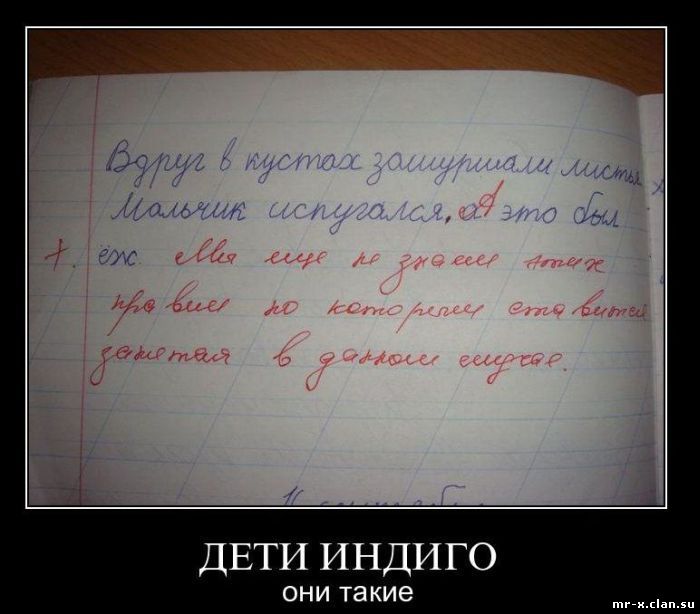 Вдруг в кустах зашуршали листья
Мальчик испугался. А это был
ёж. Мы еще не знаем этих
правил по которым ставится
запятая в данном случае.
ДЕТИ ИНДИГО
они такие
mr-x.clan.su